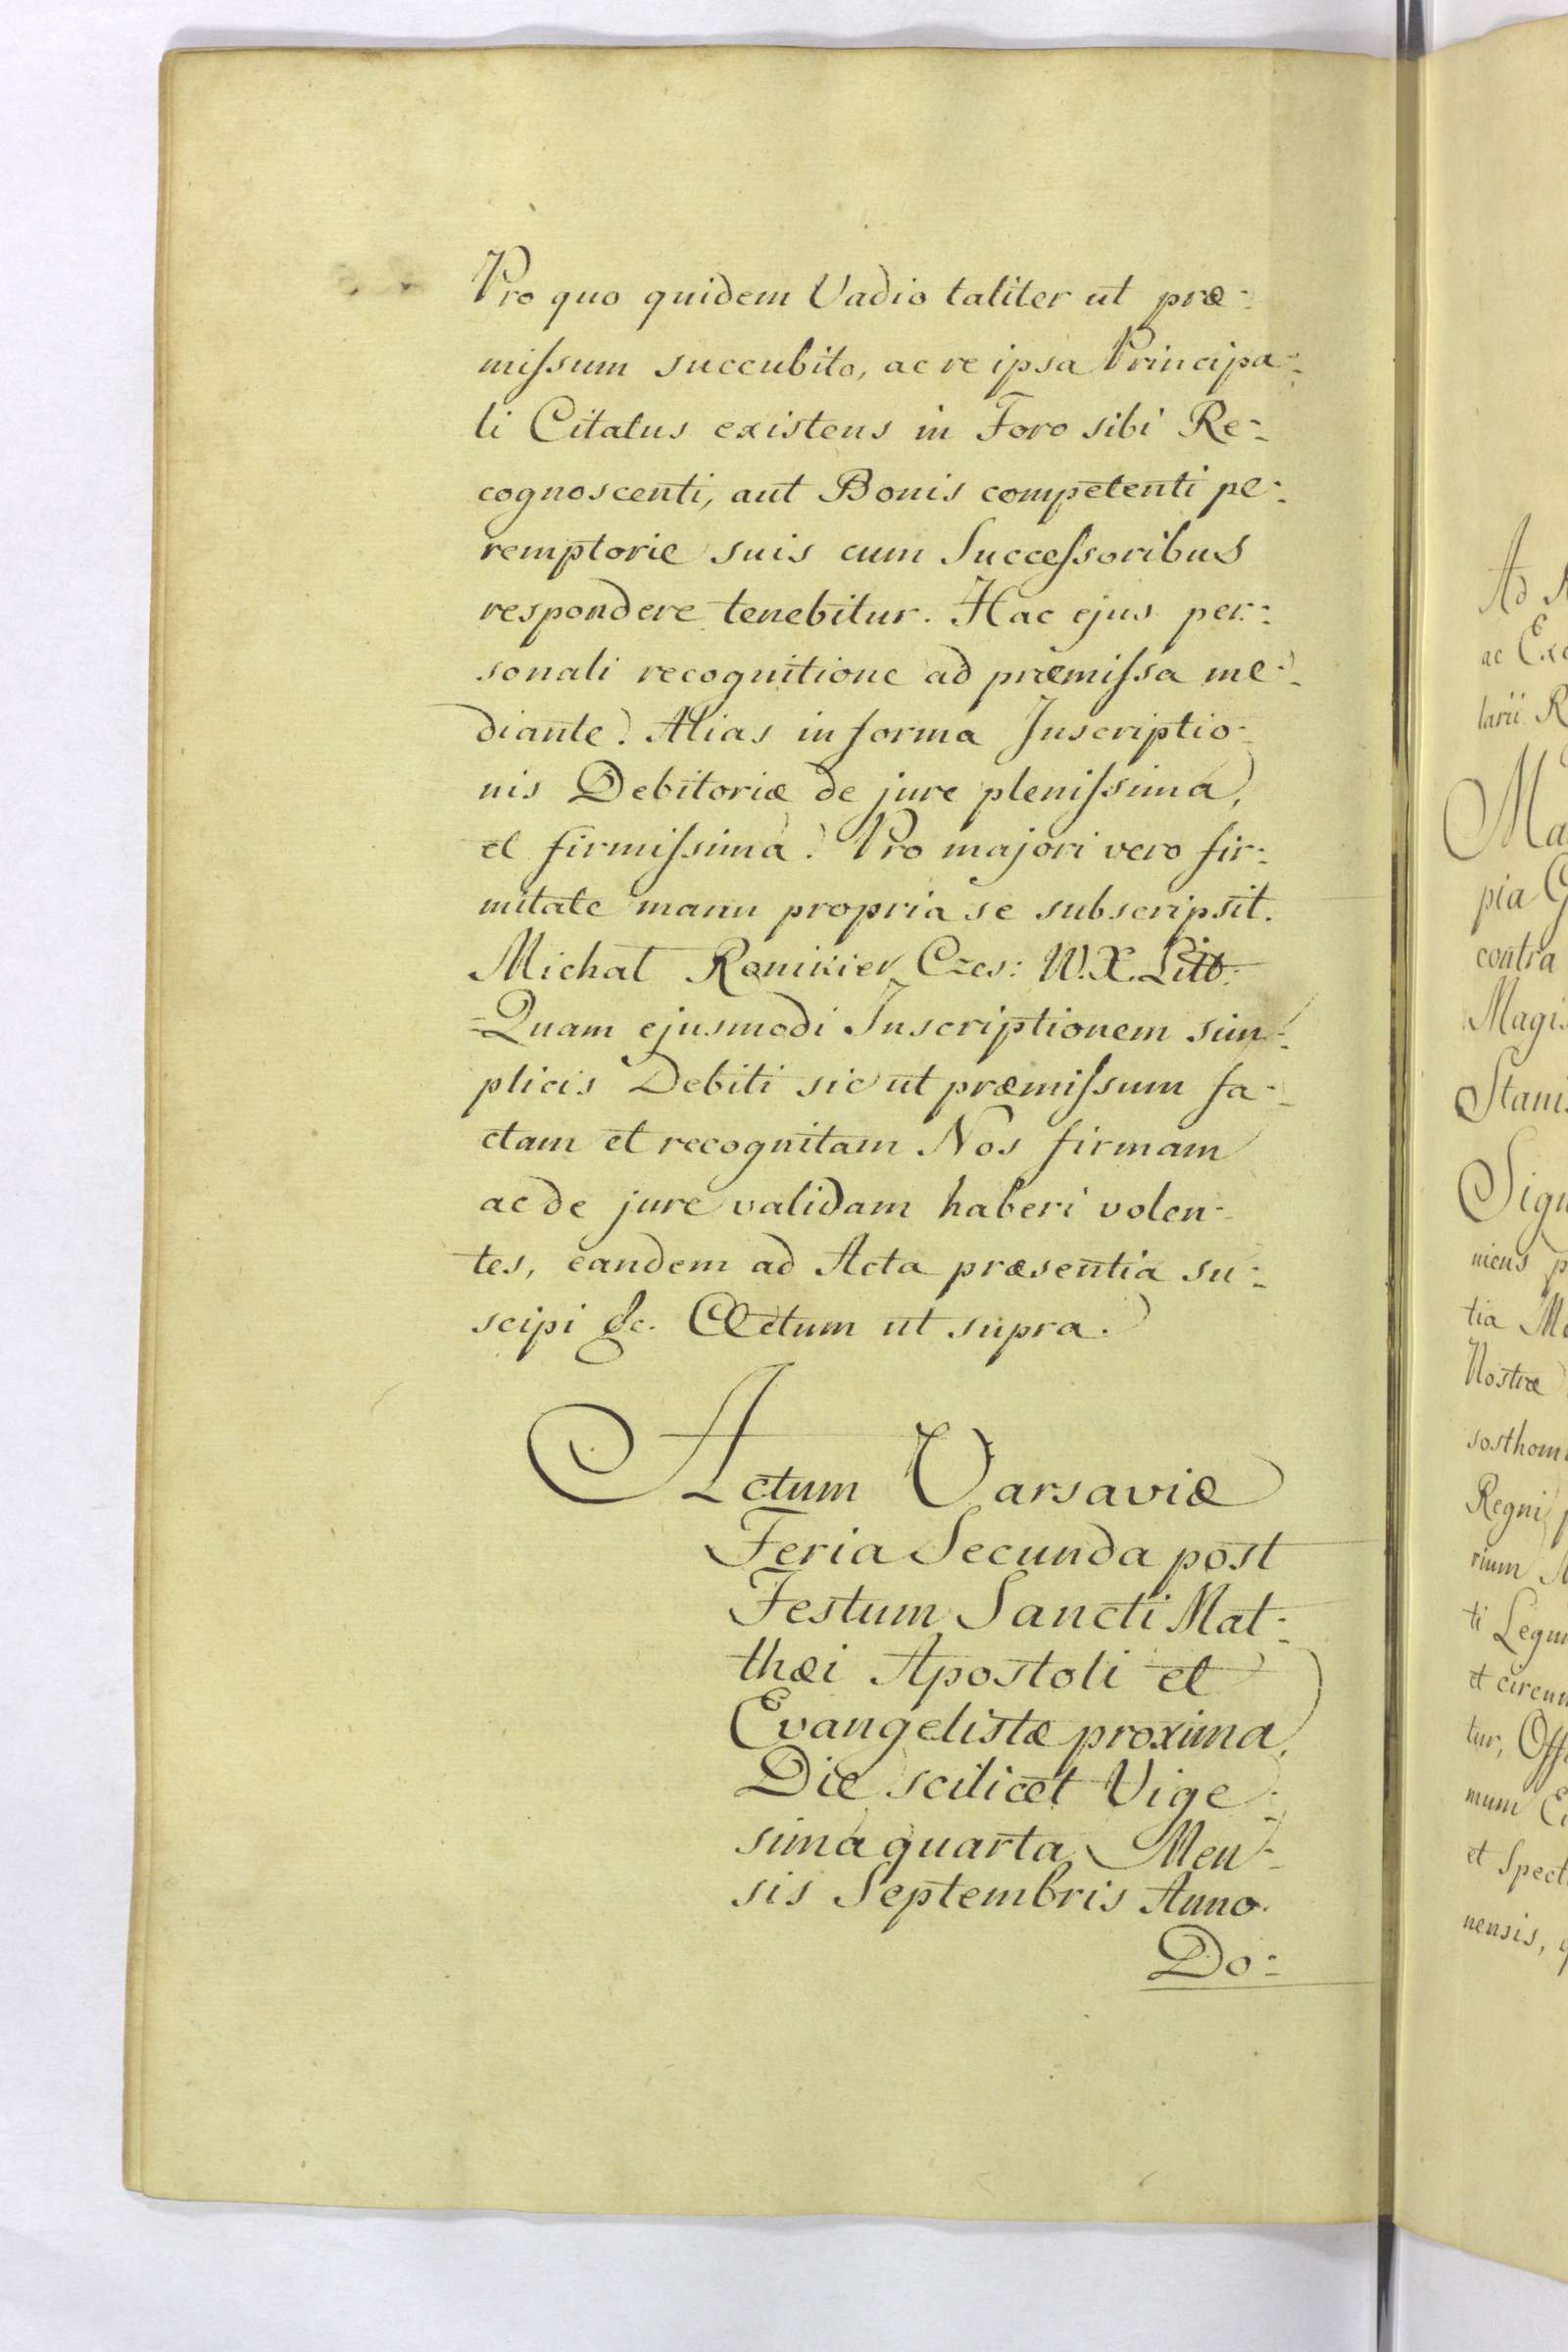 Pro quo quidem Vadio taliter ut præ-
missum succubito, ac re ipsa Principa-
li Citatus existens in Foro sibi Re-
cognoscenti, aut Bonis competenti pe-
remptorie suis cum Successoribus
respondere tenebitur. Hac ejus per-
sonali recognitione ad præmissa me-
diante. Alias in forma Inscriptio-
nis Debitoriæ de jure plenissima,
et firmissima. Pro majori vero fir-
mitate manu propria se subscripsit.
Michał Ronikier Czes: W. X. Litt.
Quam ejusmodi Inscriptionem sim-
plicis Debiti sic ut præmissum fa-
ctam et recognitam Nos firmam
ac de jure validam haberi volen-
tes, eandem ad Acta præsentia su-
scipi &c. Actum ut supra.
Actum Varsaviæ
Feria Secunda post
Festum Sancti Mat-
thæi Apostoli et
Evangelistæ proxima,
Die scilicet Vige-
sima quarta Men-
sis Septembris Anno
Do-
Ad
ac
larii
pia
contra
Nostræ
Regni
et
tur,
mum
et
nensis,